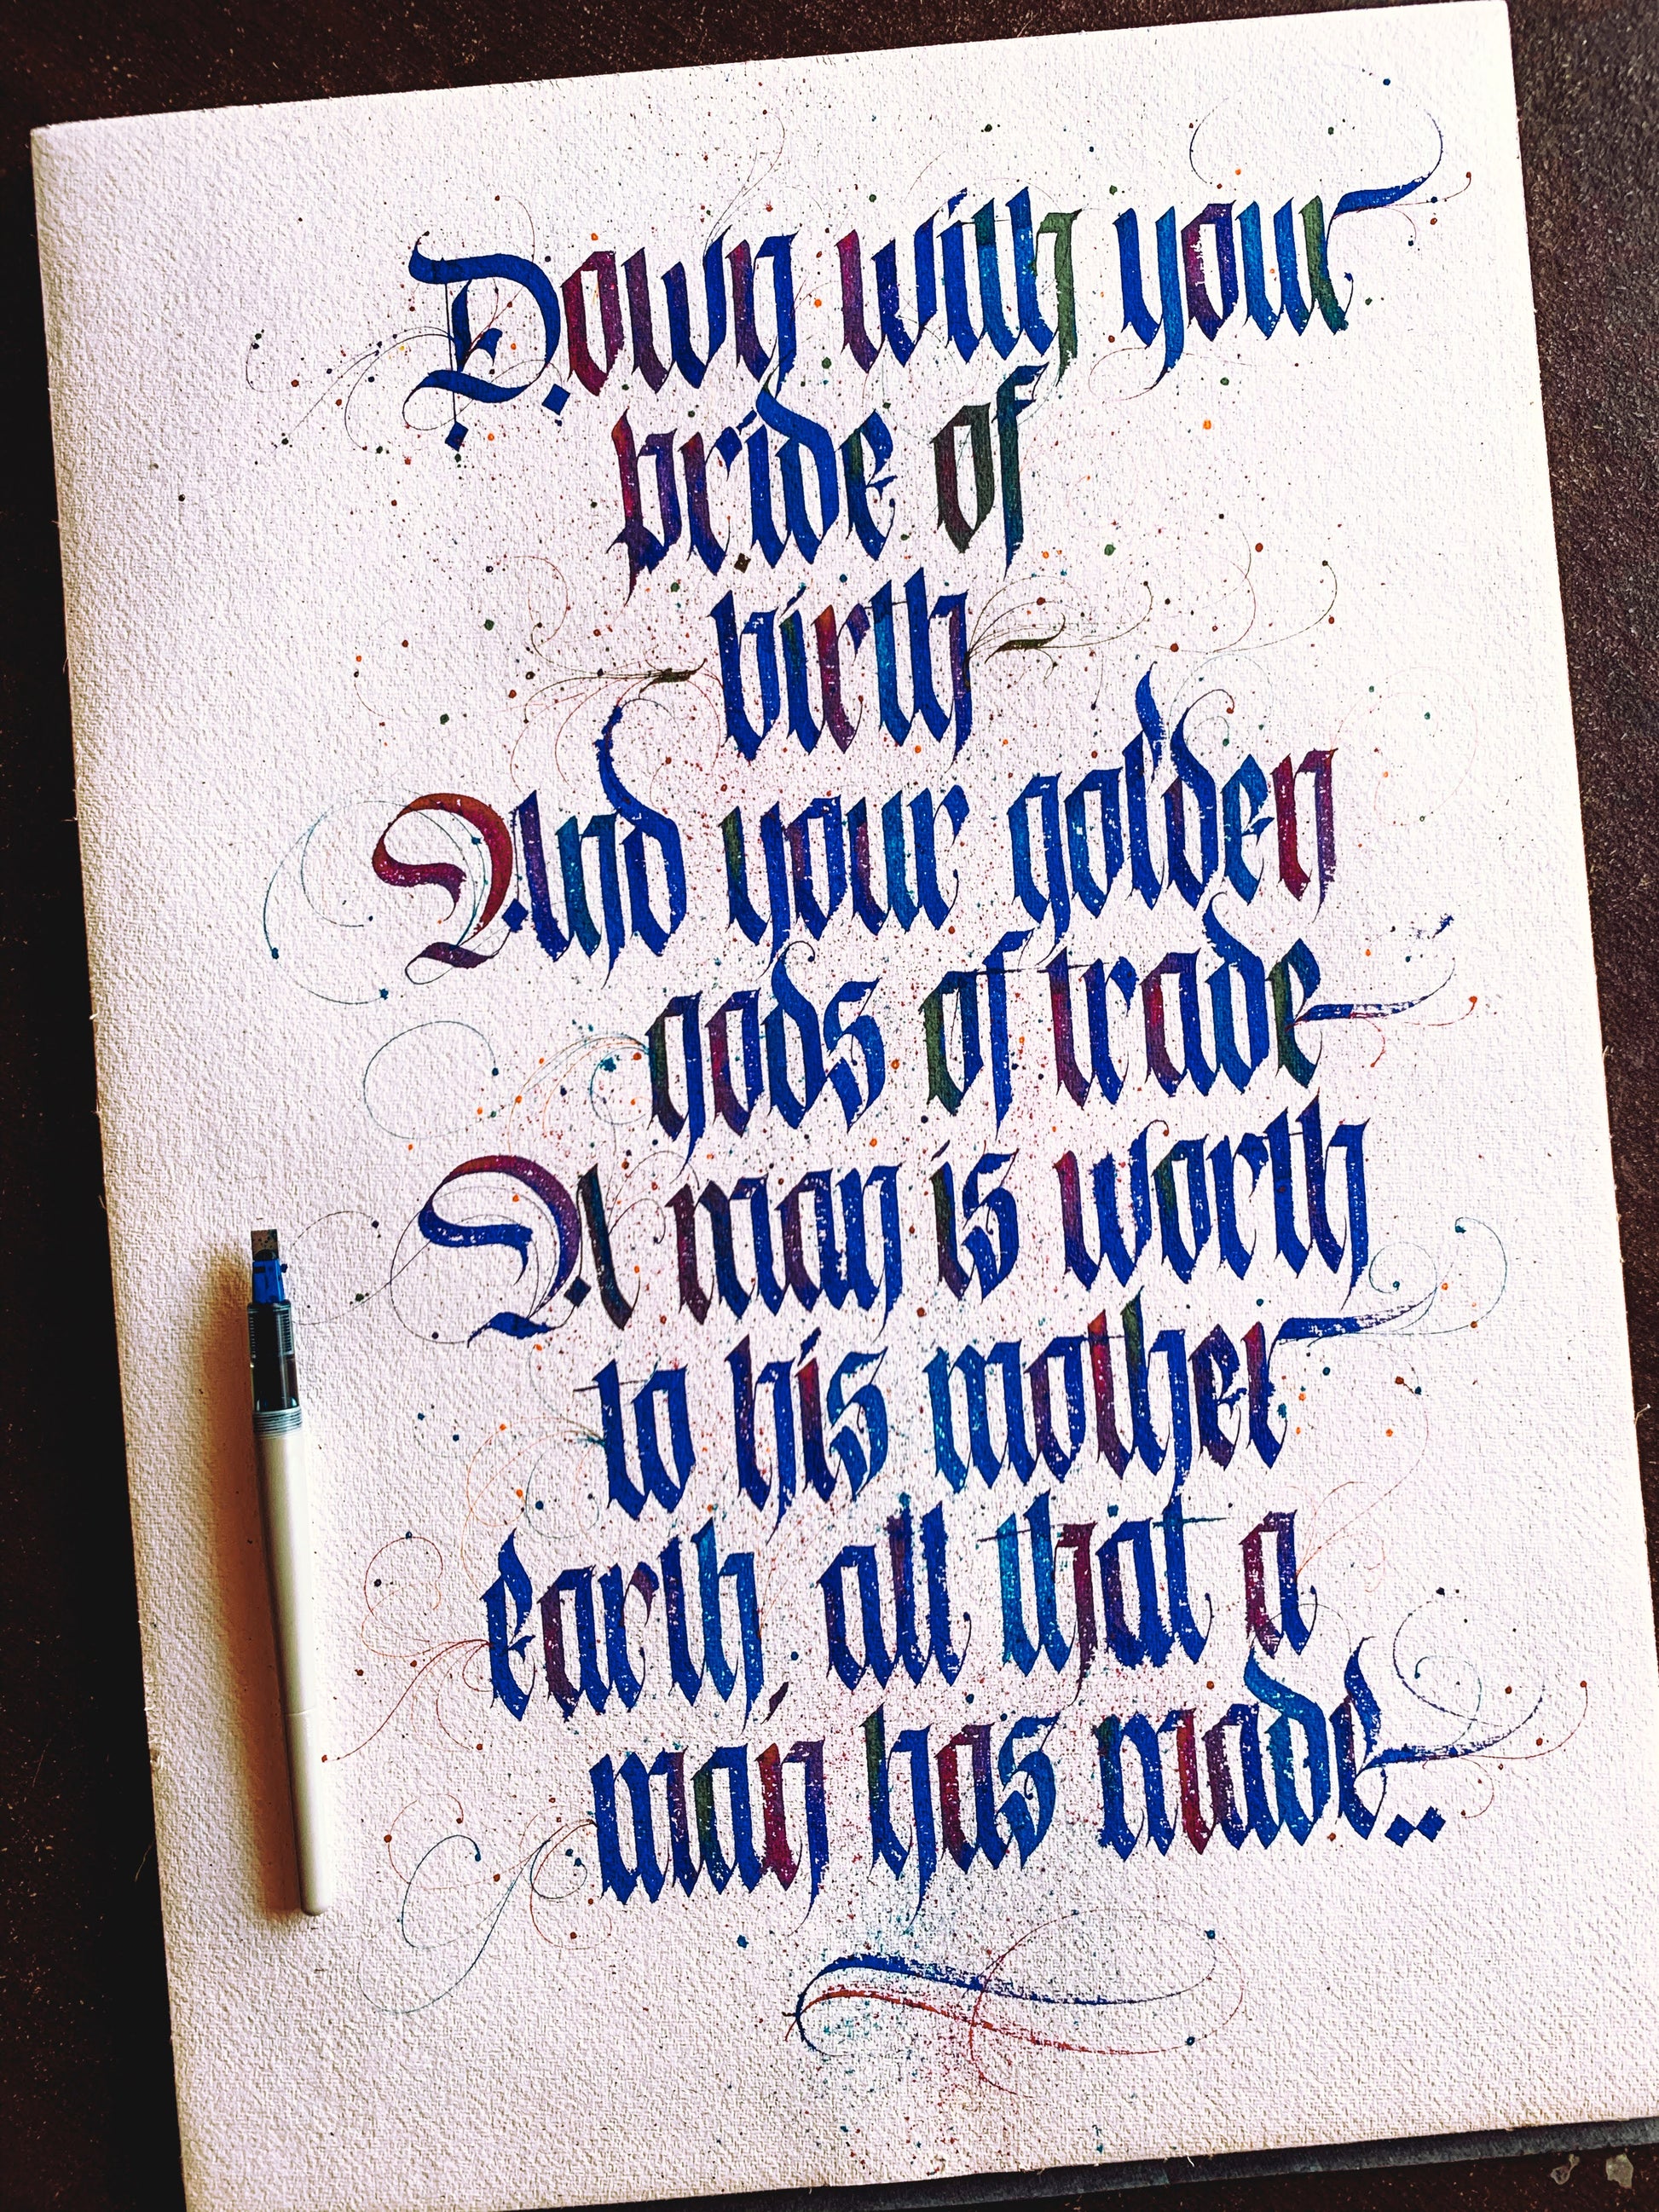 Down with your
pride of
birth
And your golden
gods of trade
A man is worth
to his mother
Earth, all that a
man has made..